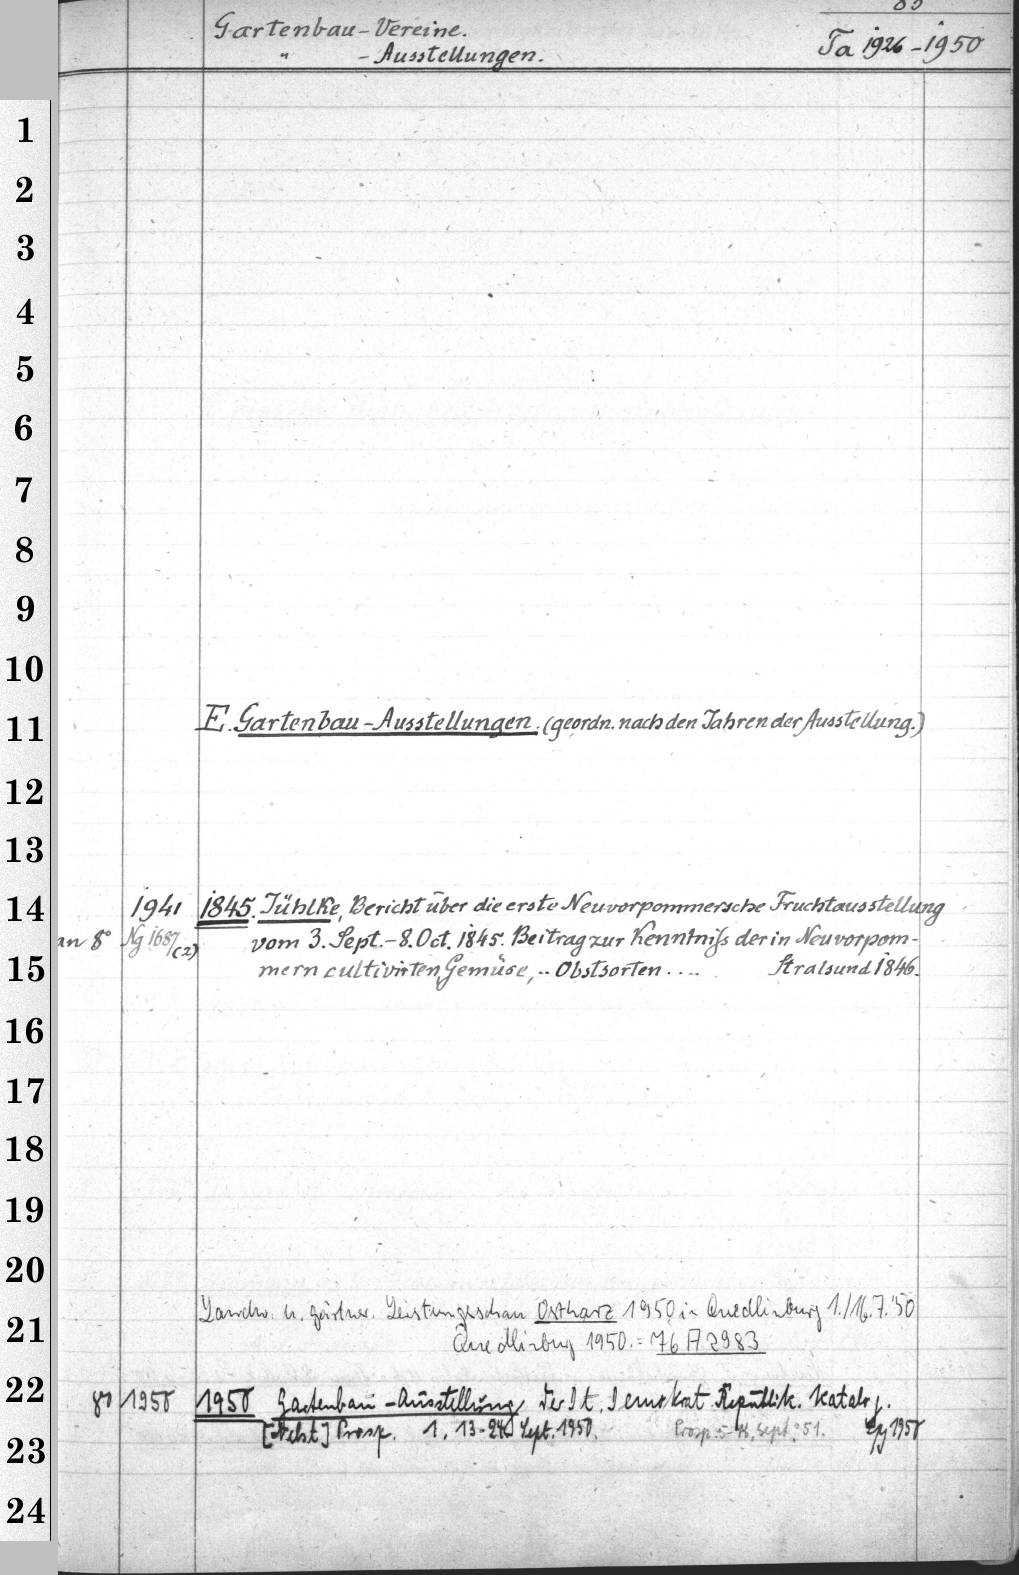 Gartenbau-Vereine.
" -Ausstellungen.
Ta 1926-1950
1
2
3
4
5
6
7
8
9
10
11 E. Gartenbau-Ausstellungen. (geordn. nach den Jahren der Ausstellung.)
12
13
14 1941 1845. Jühlke, Bericht über die erste Neuvorpommersche Fruchtausstellung
an 8° Ng 1687/(2) vom 3. Sept.-8. Oct. 1845. Beitrag zur Kenntniß der in Neuvorpom-
15 mern cultivirten Gemüse, .. Obstsorten .... Stralsund 1846.
16
17
18
19
20
Landw. u. gärtner. Leistungsschau Ostharz 1950 in Quedlinburg 1./16.7.'50
21 Quedlinburg 1950. = 76 A 2983
22 8° 1950 1950 Gartenbau-Ausstellung, der Dt. Demokrat. Republik. Katalog.
23 [Nebst] Prosp. 1, 13-24. Sept. 1950. Prosp. Sept. 51. 1950
24